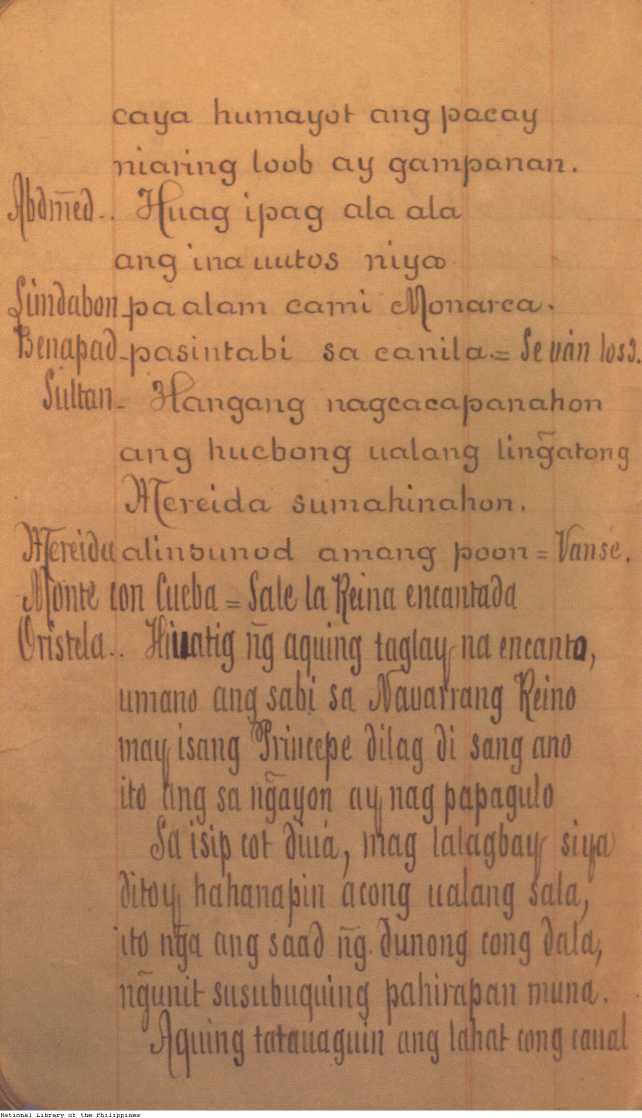 caya humayot ang pacay
niaring loob ay gampanan.
Abdmed.. Huag ipag ala ala
ang ina uutos niya
Lindabon paalam cami Monarca.
Benapad-pasintabi sa canila.= Se ván los 3.
Sultan- Hangang nagcacapanahon
ang hucbong ualang ling̃atong
Mereida sumahinahon.
Mereida alinsunod amang poon = Vanse.
Monte con Cueba = Sale la Reina encantada
Oristela.. Hiuatig ñg aquing taglay na encanto,
umano ang sabi sa Navarrang Reino
may isang Principe dilag di sang ano
ito ang sa ng̃ayon ay nag papagulo
Sa isip cot diua, mag lalagbay siya
ditoy hahanapin acong ualang sala,
ito ng̃a ang saad ñg. dunong cong dala,
ng̃unit susubuquing pahirapan muna.
Aquing tatauaguin ang lahat cong caual
National Library of the Philippines